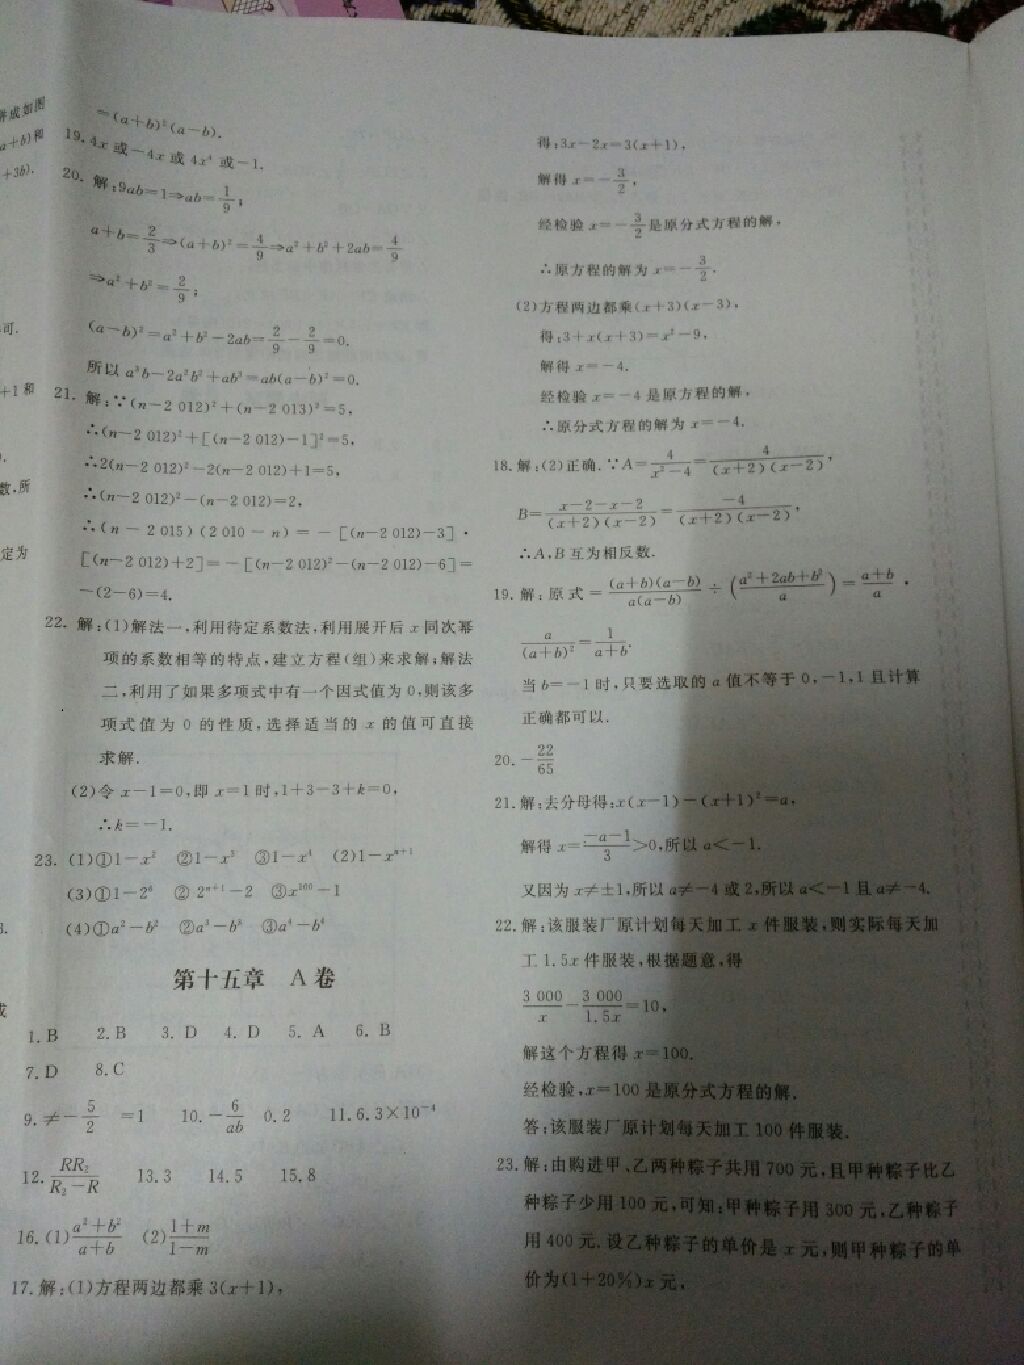 拼成如图
a+b)和
+3b).
可.
+1和
数,所
定为
=(a+b)²(a-b).
19. 4x 或-4x 或 4x⁴ 或-1.
20. 解:9ab=1⇒ab=1/9;
a+b=2/3⇒(a+b)²=4/9⇒a²+b²+2ab=4/9
⇒a²+b²=2/9;
(a-b)²=a²+b²-2ab=2/9-2/9=0.
所以 a³b-2a²b²+ab³=ab(a-b)²=0.
21. 解:∵(n-2 012)²+(n-2 013)²=5,
∴(n-2 012)²+[(n-2 012)-1]²=5,
∴2(n-2 012)²-2(n-2 012)+1=5,
∴(n-2 012)²-(n-2 012)=2,
∴(n-2 015)(2 010-n)=-[(n-2 012)-3]·
[(n-2 012)+2]=-[(n-2 012)²-(n-2 012)-6]=
-(2-6)=4.
22. 解:(1)解法一,利用待定系数法,利用展开后 x 同次幂
项的系数相等的特点,建立方程(组)来求解;解法
二,利用了如果多项式中有一个因式值为 0,则该多
项式值为 0 的性质,选择适当的 x 的值可直接
求解.
(2)令 x-1=0,即 x=1 时,1+3-3+k=0,
∴k=-1.
23. (1)①1-x² ②1-x³ ③1-x⁴ (2)1-xⁿ⁺¹
(3)①1-2⁶ ②2ⁿ⁺¹-2 ③x¹⁰⁰-1
(4)①a²-b² ②a³-b³ ③a⁴-b⁴
第十五章 A 卷
1. B 2. B 3. D 4. D 5. A 6. B
7. D 8. C
9. ≠-5/2 =1 10. -6/ab 0.2 11. 6.3×10⁻⁴
12. RR₂/(R₂-R) 13. 3 14. 5 15. 8
16. (1)(a²+b²)/(a+b) (2)(1+m)/(1-m)
17. 解:(1)方程两边都乘 3(x+1),
得:3x-2x=3(x+1),
解得 x=-3/2,
经检验 x=-3/2是原分式方程的解,
∴原方程的解为 x=-3/2.
(2)方程两边都乘(x+3)(x-3),
得:3+x(x+3)=x²-9,
解得 x=-4.
经检验 x=-4 是原方程的解,
∴原分式方程的解为 x=-4.
18. 解:(2)正确.∵A=4/(x²-4)=4/((x+2)(x-2)),
B=(x-2-x-2)/((x+2)(x-2))=-4/((x+2)(x-2)),
∴A,B 互为相反数.
19. 解:原式=(a+b)(a-b)/(a(a-b))÷((a²+2ab+b²)/a)=(a+b)/a·
a/(a+b)²=1/(a+b).
当 b=-1 时,只要选取的 a 值不等于 0,-1,1 且计算
正确都可以.
20. -22/65
21. 解:去分母得:x(x-1)-(x+1)²=a,
解得 x=(-a-1)/3>0,所以 a<-1.
又因为 x≠±1,所以 a≠-4 或 2,所以 a<-1 且 a≠-4.
22. 解:该服装厂原计划每天加工 x 件服装,则实际每天加
工 1.5x 件服装,根据题意,得
3 000/x-3 000/1.5x=10,
解这个方程得 x=100.
经检验,x=100 是原分式方程的解.
答:该服装厂原计划每天加工 100 件服装.
23. 解:由购进甲、乙两种粽子共用 700 元,且甲种粽子比乙
种粽子少用 100 元,可知:甲种粽子用 300 元,乙种粽子
用 400 元.设乙种粽子的单价是 x 元,则甲种粽子的单
价为(1+20%)x 元,